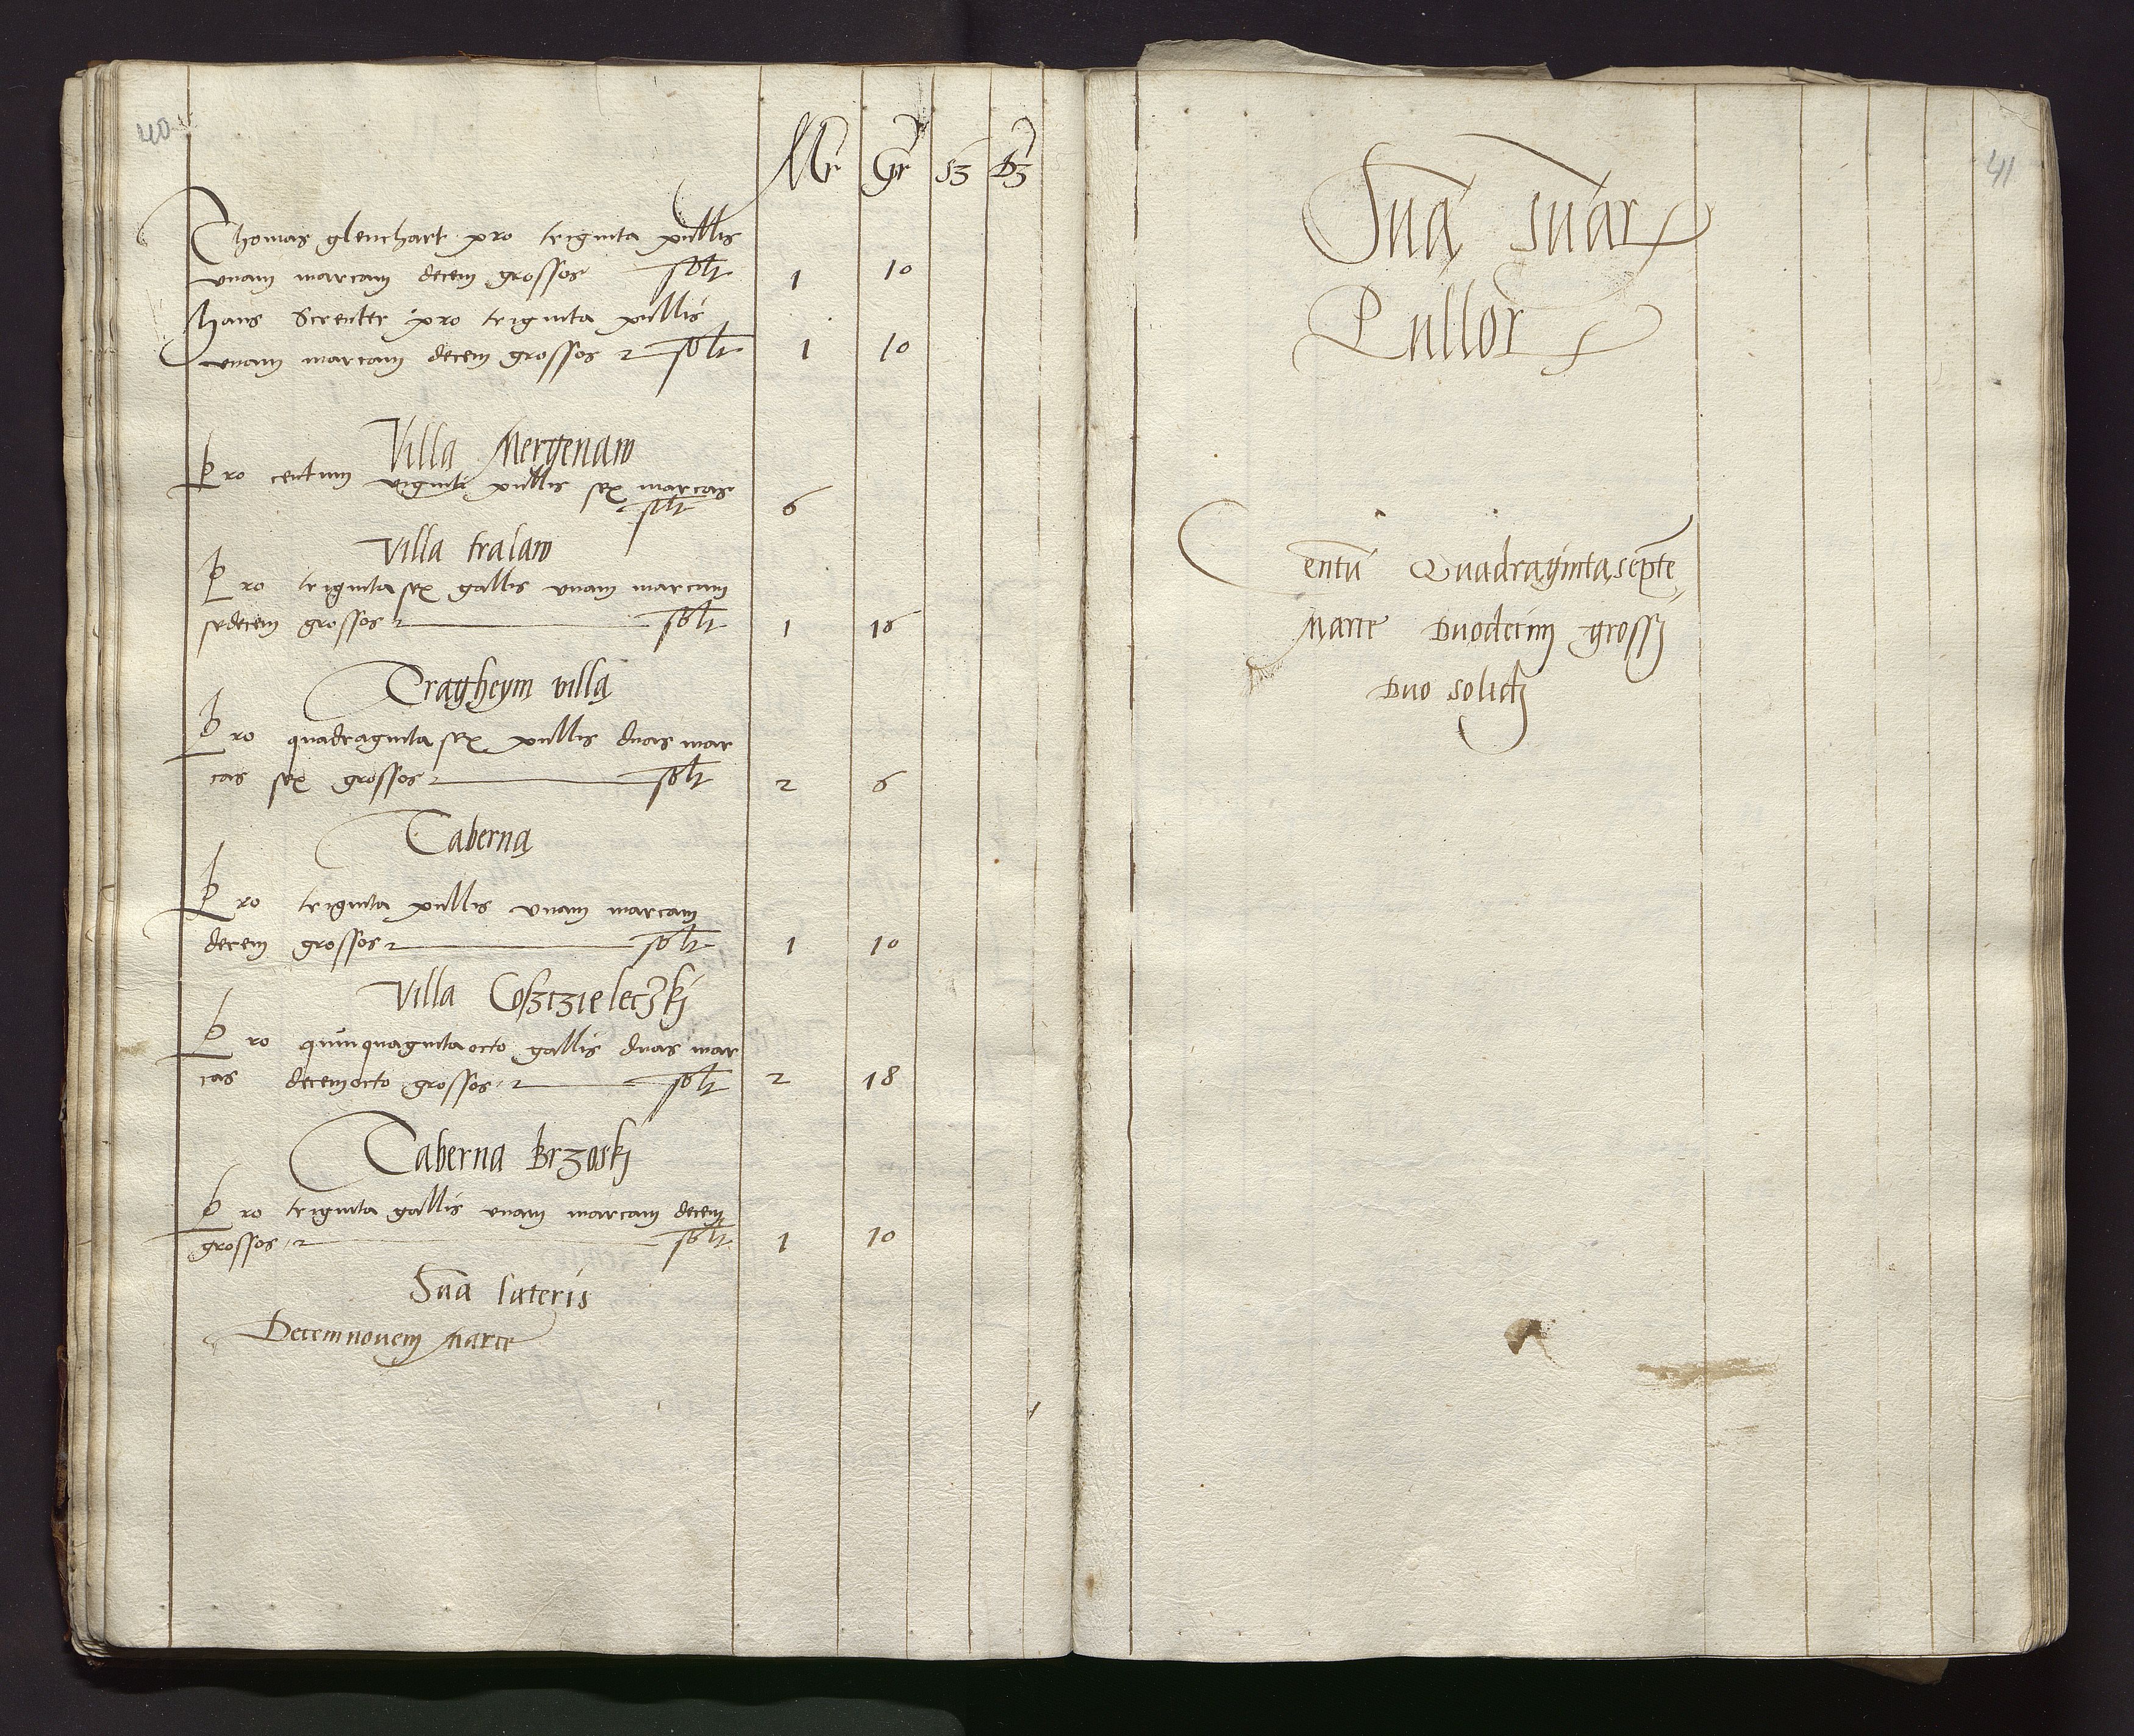 40
Mr gr sz dz
Thomas glenchart pro triginta pullis
vnam marcam decem grossos solt 1 10
Hans Screnter pro triginta pullis
vnam marcam decem grossos solt 1 10
Villa Mergenaw
Pro centum viginti pullis sex marcas
solt 6
Villa tralaw
Pro trigintasex gallis vnam marcam
sedecem grossos solt 1 16
Tragheym villa
Pro quadragintasex pullis duas mar
cas sex grossos solt 2 6
Taberna
Pro triginta pullis vnam marcam
decem grossos solt 1 10
Villa Coszczieleczkj
Pro quinquagintaocto gallis duas mar
cas decemocto grossos solt 2 18
Taberna Brzoskj
Pro triginta gallis vnam marcam decem
grossos solt 1 10
Sūa lateris
Decemnouem Marce
41
Sūa sūar
Pullor
Centū Quadragintasepte
Marce Duodecim grossj
Duo solidj